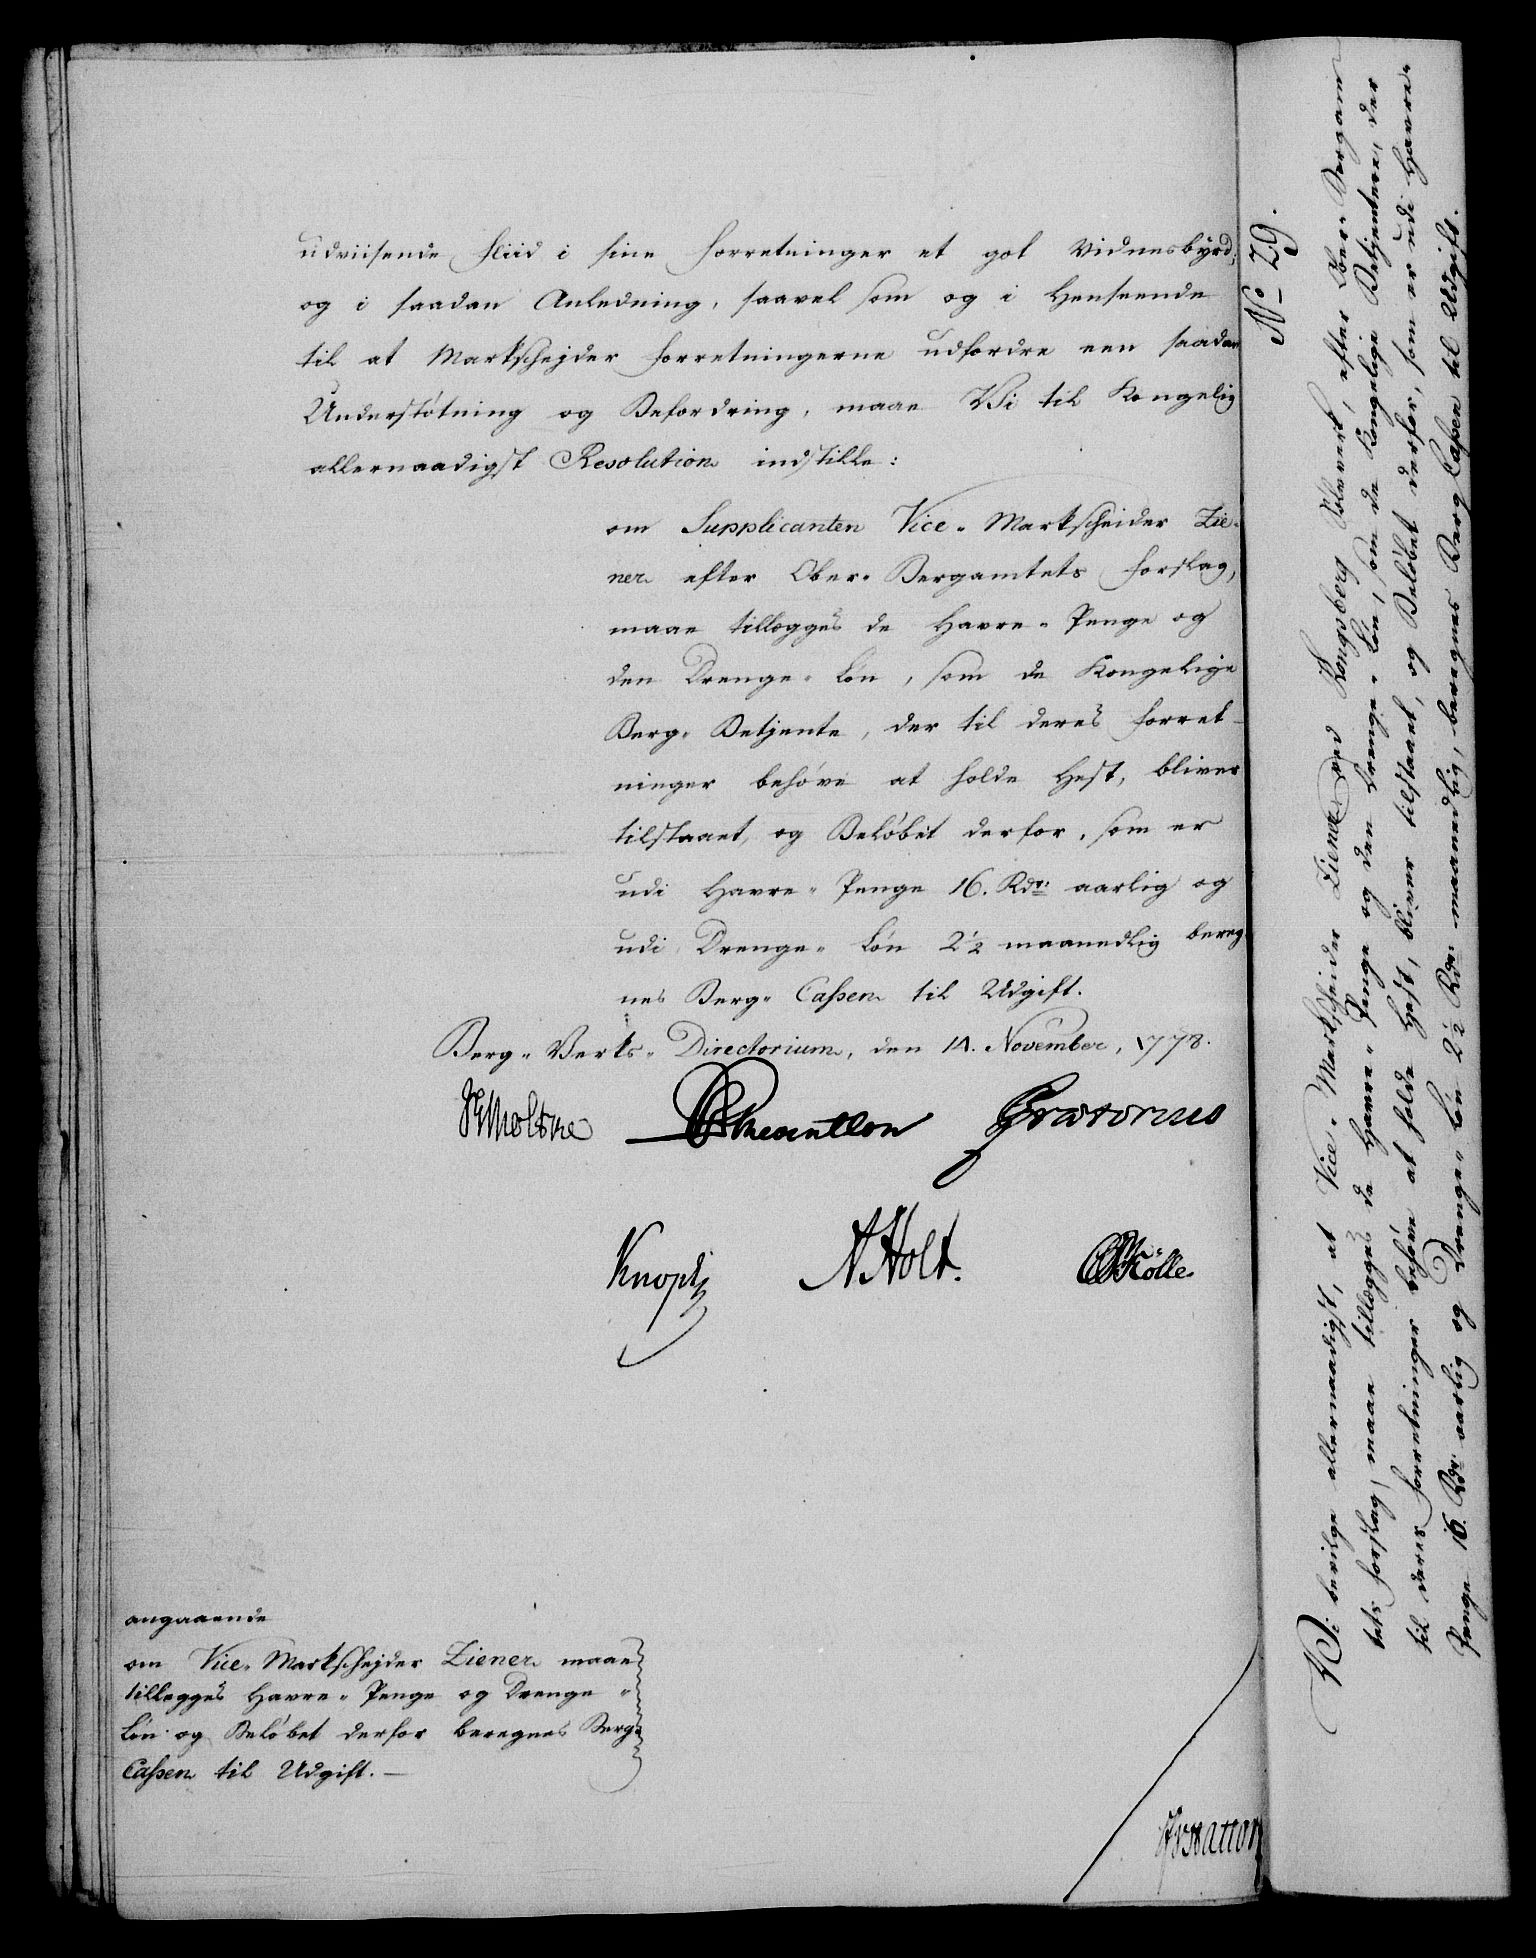 udviisende Fliid i sine Forretninger et got Vidnesbyrd;
og i saadan Anledning, saavel som og i Henseende
til at Markschejder Forretningerne udfordre een saadan
Understøtning og Befordring, maae Vi til Kongelig
allernaadigst Resolution indstille:
om Supplicanten Vice-Markscheider Zie-
ner efter Ober-Bergamtets Forslag,
maae tillegges de Havre-Penge og
den Drenge-Løn, som de Kongelige
Berg-Betjente, der til deres Forret-
ninger behøve at holde Hest, bliver
tilstaaet, og Beløbet derfor, som er
udi Havre-Penge 16. Rdr: aarlig og
udi Drenge-Løn 2½ maanedlig bereg-
nes Berg-Cassen til Udgift.
Berg-Verks-Directorium, den 14. November, 1778.
Prætorius
Knoph
N Holt.
angaaende
om Vice-Markschejder Ziener maae
tillegges Havre-Penge og Drenge-
Løn og Beløbet derfor beregnes Berg-
Cassen til Udgift.
No 29.
Vi bevilge allernaadigst, at Vice-Markscheider Ziener ved Kongsberg Sølverk, efter Ober-Bergam-
tets Forslag, maae tillegges de Havre-Penge og den Drenge-Løn, som de Kongelige Betjentere, der
til deres Forretninger behøve at holde Hest, bliver tilstaaet, og Beløbet derfor, som er udi Havre-
Penge 16. Rdr: aarlig og Drenge-Løn 2½ Rdr: maanedlig, beregnes Berg Cassen til Udgift.